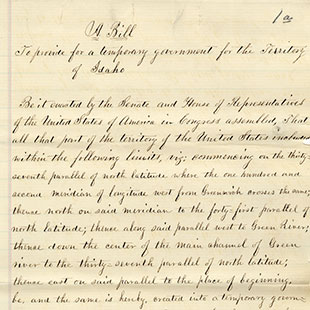 1a
A Bill
To provide for a temporary government for the Territory
of Idaho
Be it enacted by the Senate and House of Representatives
of the United States of America in Congress assembled, That
all that part of the territory of the United States included
within the following limits, viz; commencing on the thirty-
seventh parallel of north latitude where the one hundred and
second meridian of longitude west from Greenwich crosses the same;
thence north on said meridian to the forty-first parallel of
north latitude; thence along said parallel west to Green River;
thence down the center of the main channel of Green
river to the thirty-seventh parallel of north latitude;
thence east on said parallel to the place of beginning,
be, and the same is hereby, created into a temporary govern-